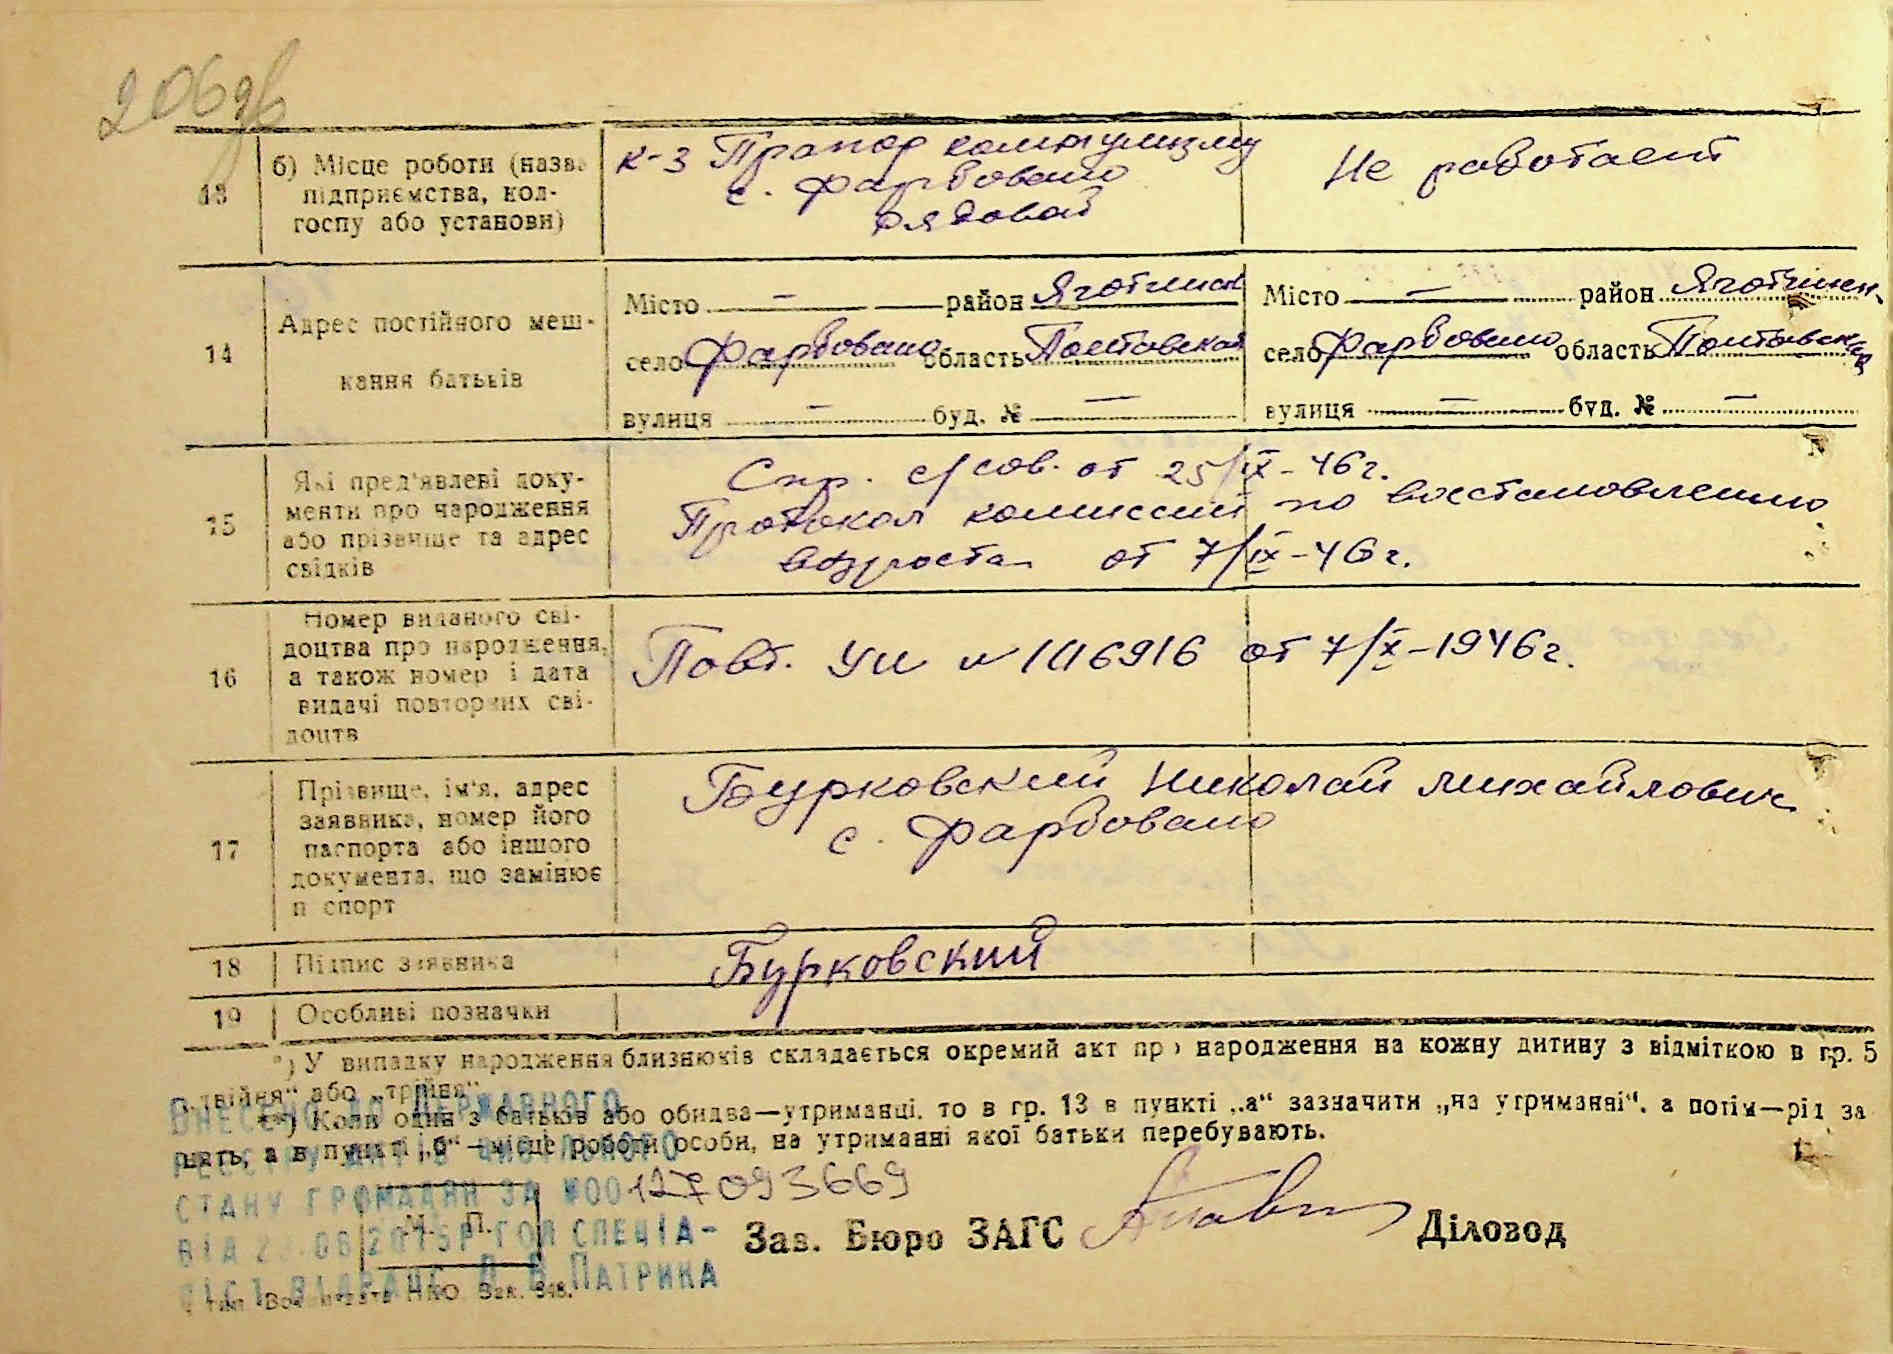 206 зв
13
б) Місце роботи (назва підприємства, колгоспу або установи)
к-з Прапор коммунизму
с. Фарбовано
рядовой
Не работает
14
Адрес постійного мешкання батьків
Місто — район Яготинск
село Фарбовано область Полтавская
вулиця — буд. № —
Місто — район Яготинск.
село Фарбовано область Полтавская
вулиця — буд. № —
15
Які пред'явлені доку-
менти про народження
або прізвище та адрес
свідків
Спр. с/сов. от 25/IX-46г.
Протокол комиссии по восстановлению
возроста от 7/IX-46г.
16
Номер виданого сві-
доцтва про народження,
а також номер і дата
видачі повторних сві-
доцтв
Повт. УИ № 1116916 от 7/X-1946г.
17
Прізвище, ім'я, адрес
заявника, номер його
паспорта або іншого
документа, що замінює
п спорт
Бурковский Николай Михайлович
с. Фарбовано
18
Підпис заявника
Бурковский
19
Особливі позначки
*) У випадку народження близнюків складається окремий акт про народження на кожну дитину з відміткою в гр. 5
„двійня“ або „трійня“
**) Коли один з батьків або обидва—утриманці, то в гр. 13 в пункті „а“ зазначити „на утриманні“, а потім—рід за
нять, а в пункті „б“—місце роботи особи, на утриманні якої батьки перебувають.
ВНЕСЕНО ДО ДЕРЖАВНОГО
РЕЄСТРУ АКТІВ ЦИВІЛЬНОГО
СТАНУ ГРОМАДЯН ЗА №00127093669
ВІД 2 .06 2015Р ГОЛ СПЕЦІА-
ЛІСТ ПАТРИКА
М. П.
Зав. Бюро ЗАГС
Діловод
НКО Зак. 348.